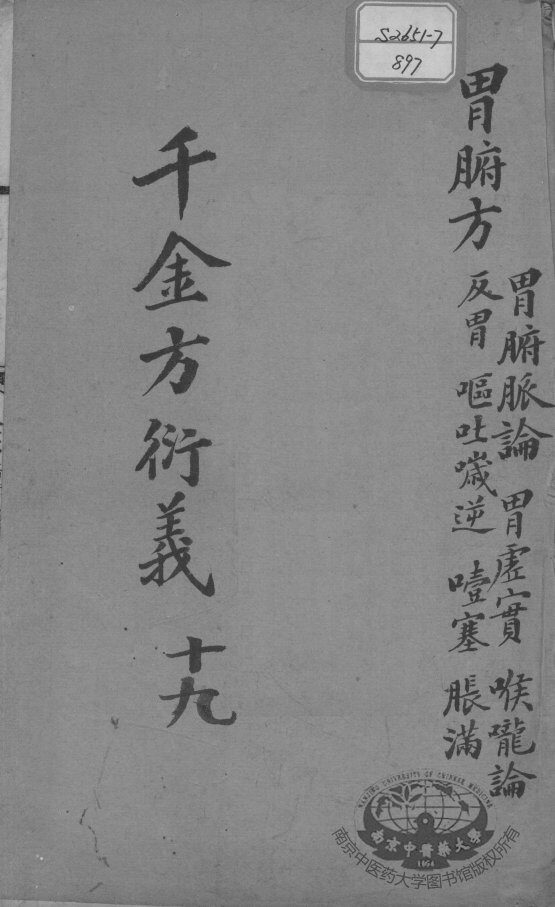 S2651-7
897
胃腑方
胃腑脈論 胃虛實 喉嚨論
反胃 嘔吐噦逆 噎塞 脹滿
千金方衍義 十九
NANJING UNIVERSITY OF CHINESE MEDICINE
南京中醫藥大學
1954
南京中医药大学图书馆版权所有